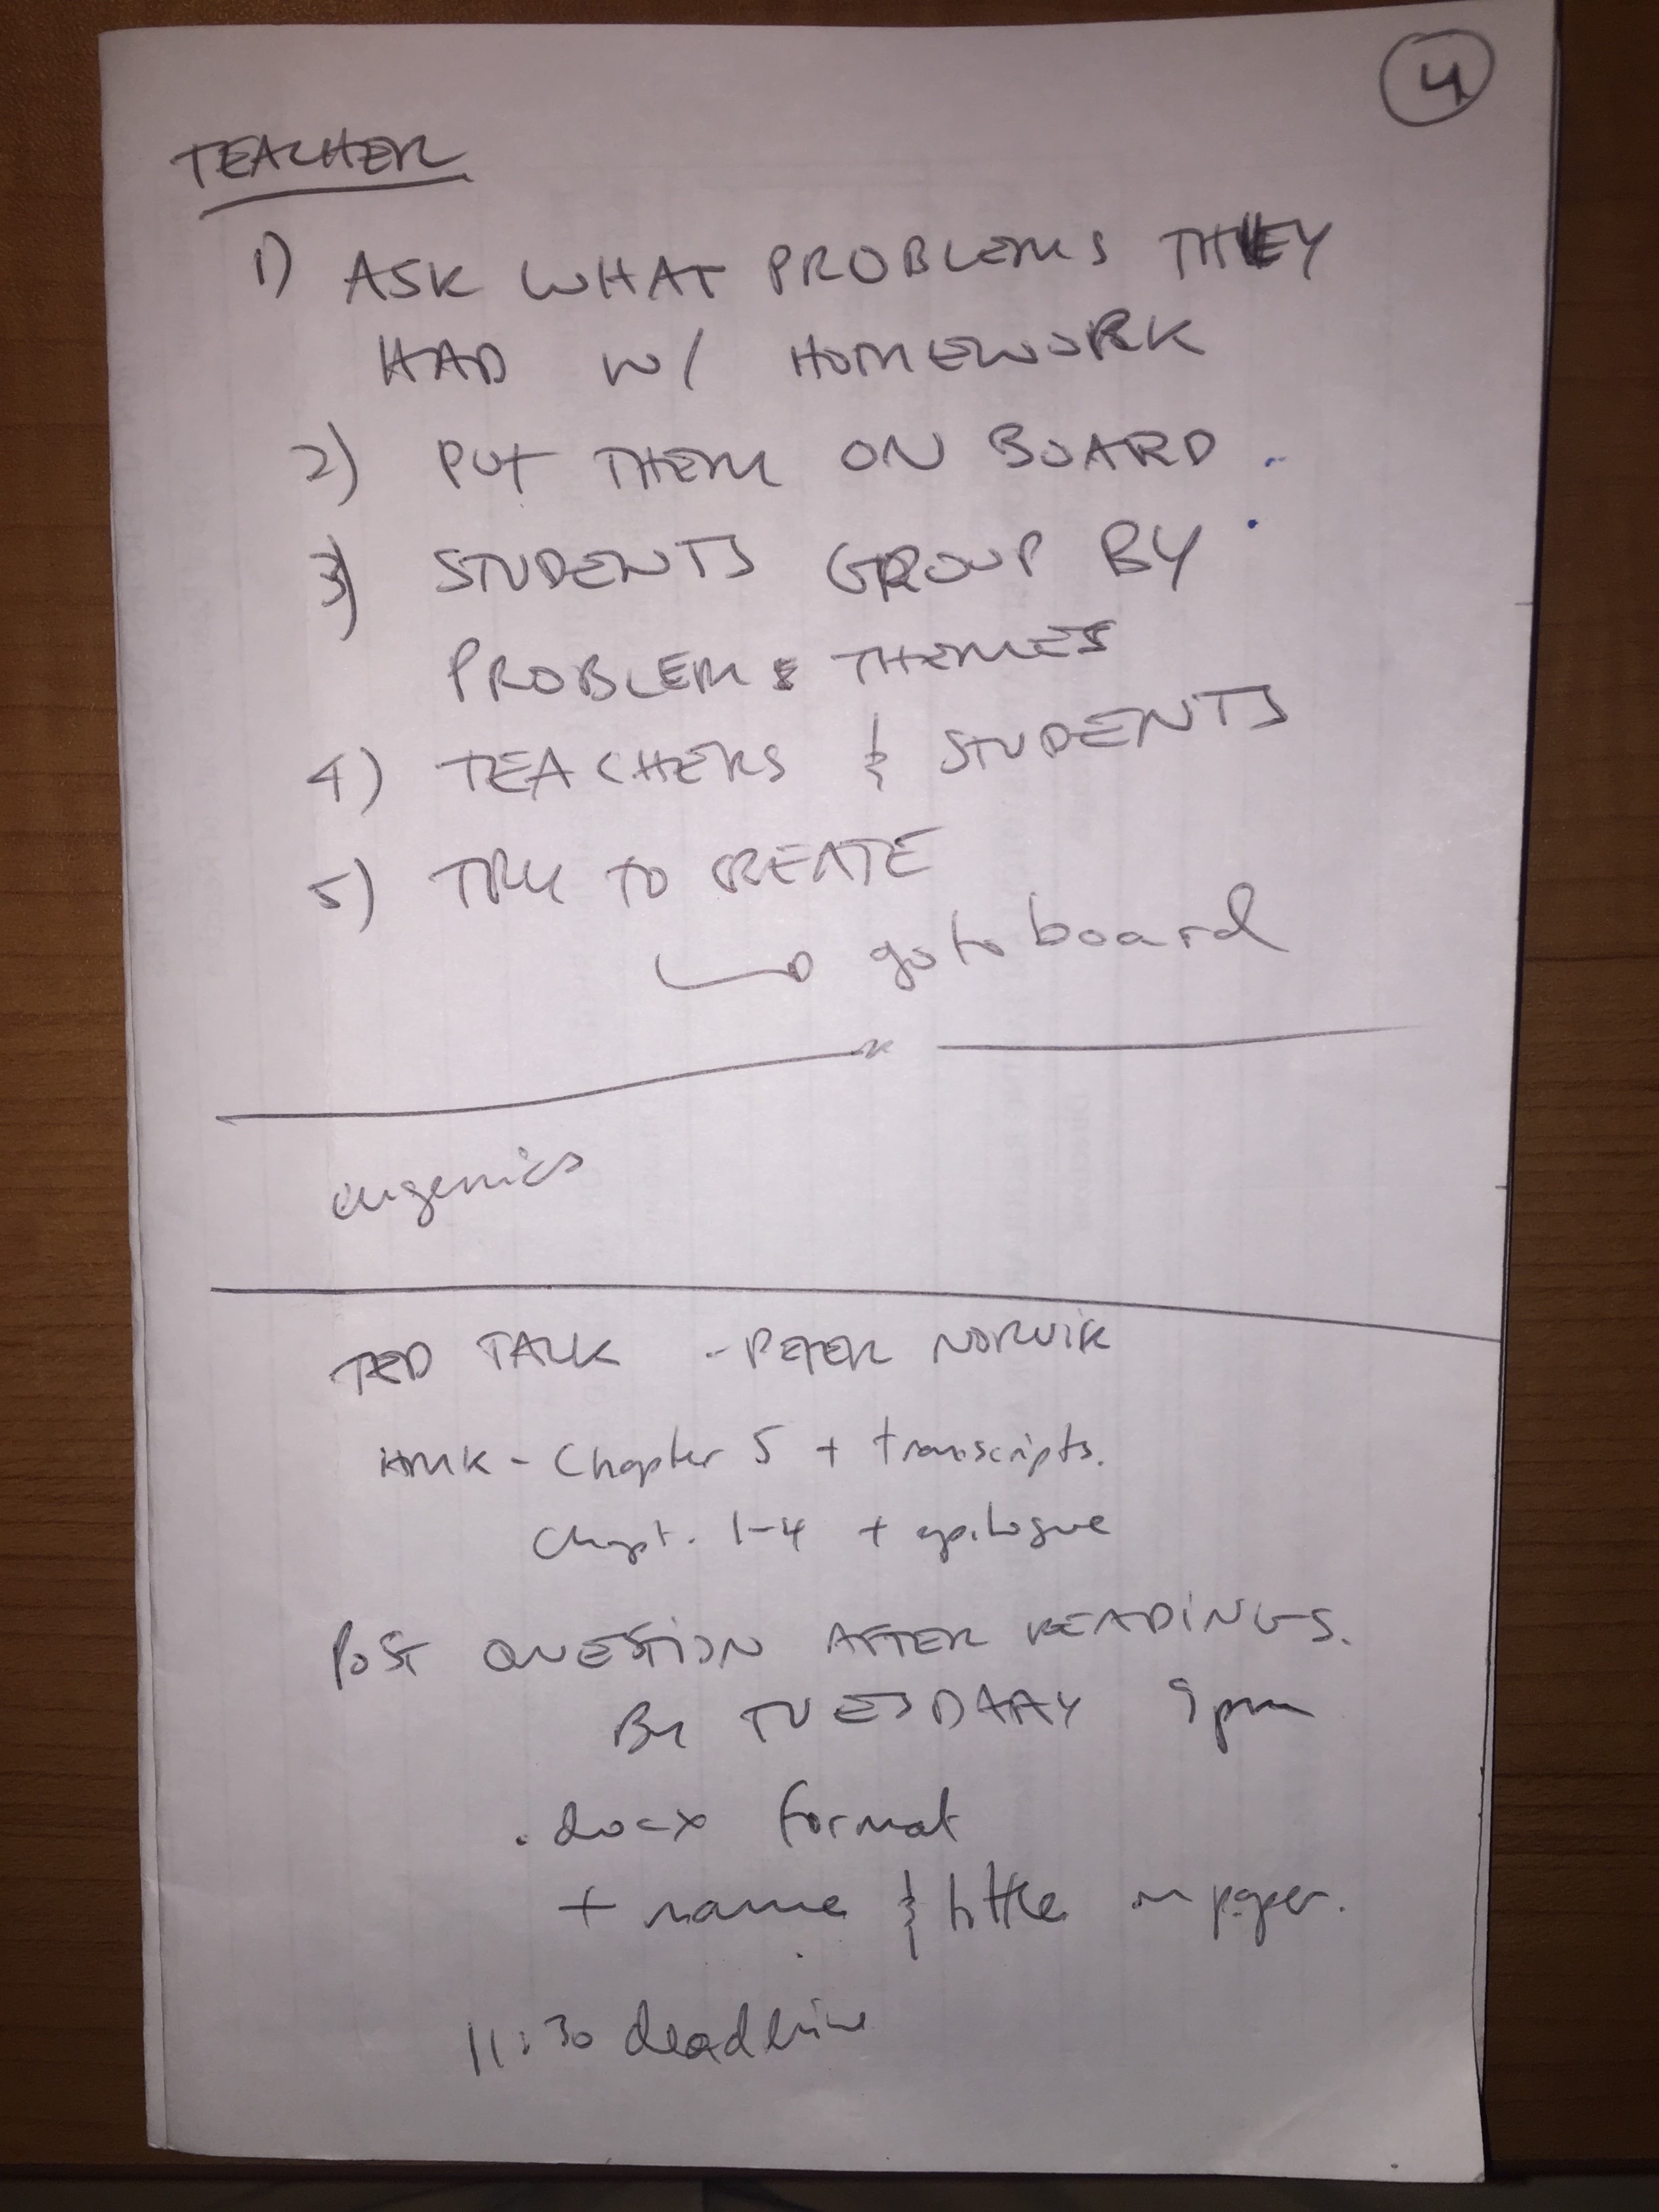 4
TEACHER
1) ASK WHAT PROBLEMS THEY
HAD W/ HOMEWORK
2) PUT THEM ON BOARD.
3) STUDENTS GROUP BY
PROBLEM & THEMES
4) TEACHERS & STUDENTS
5) TRY TO CREATE
go to board
eugenics
TED TALK - PETER NORVIK
HMK - Chapter 5 + transcripts.
Chapt. 1-4 + epilogue
POST QUESTION AFTER READINGS.
By TUESDAAY 9pm
.docx format
+ name & tittle on paper.
11:30 deadline